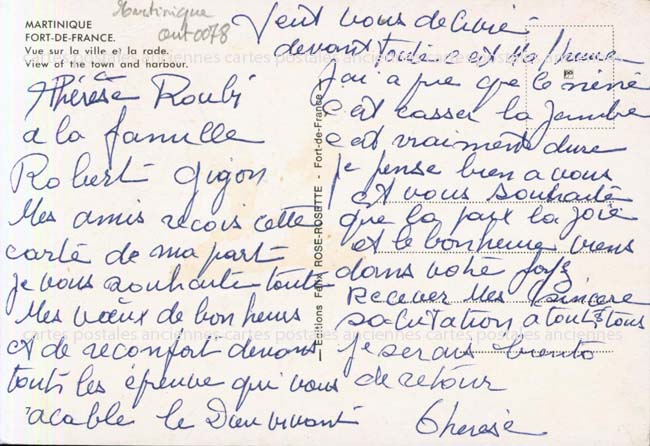 MARTINIQUE
FORT-DE-FRANCE.
Vue sur la ville et la rade.
View of the town and harbour.
Martinique
Thérèse Roubi
a la famille
Robert Gigon
Mes amis recois cette
carté de ma part
je vous souhaite toute
Mes vœux de bonheurs
et de reconfort devans
touts les épreuve qui vous
acable le Dieu vivant
— Editions Félix ROSE-ROSETTE - Fort-de-France —
veut vous delivré
devant toute c'est
j'ai apre que le
c'est casser la jambe
c'est vraiment dure
je pense bien a vous
et vous souhaite
que la paix la joie
et le bonheure viens
dans votre
Recever Mes sincere
salutation a touts tous
je serais viento
de retour
Therese
cartes postales anciennes cartes postales anciennes cartes postales anciennes
cartes postales anciennes cartes postales anciennes cartes postales anciennes